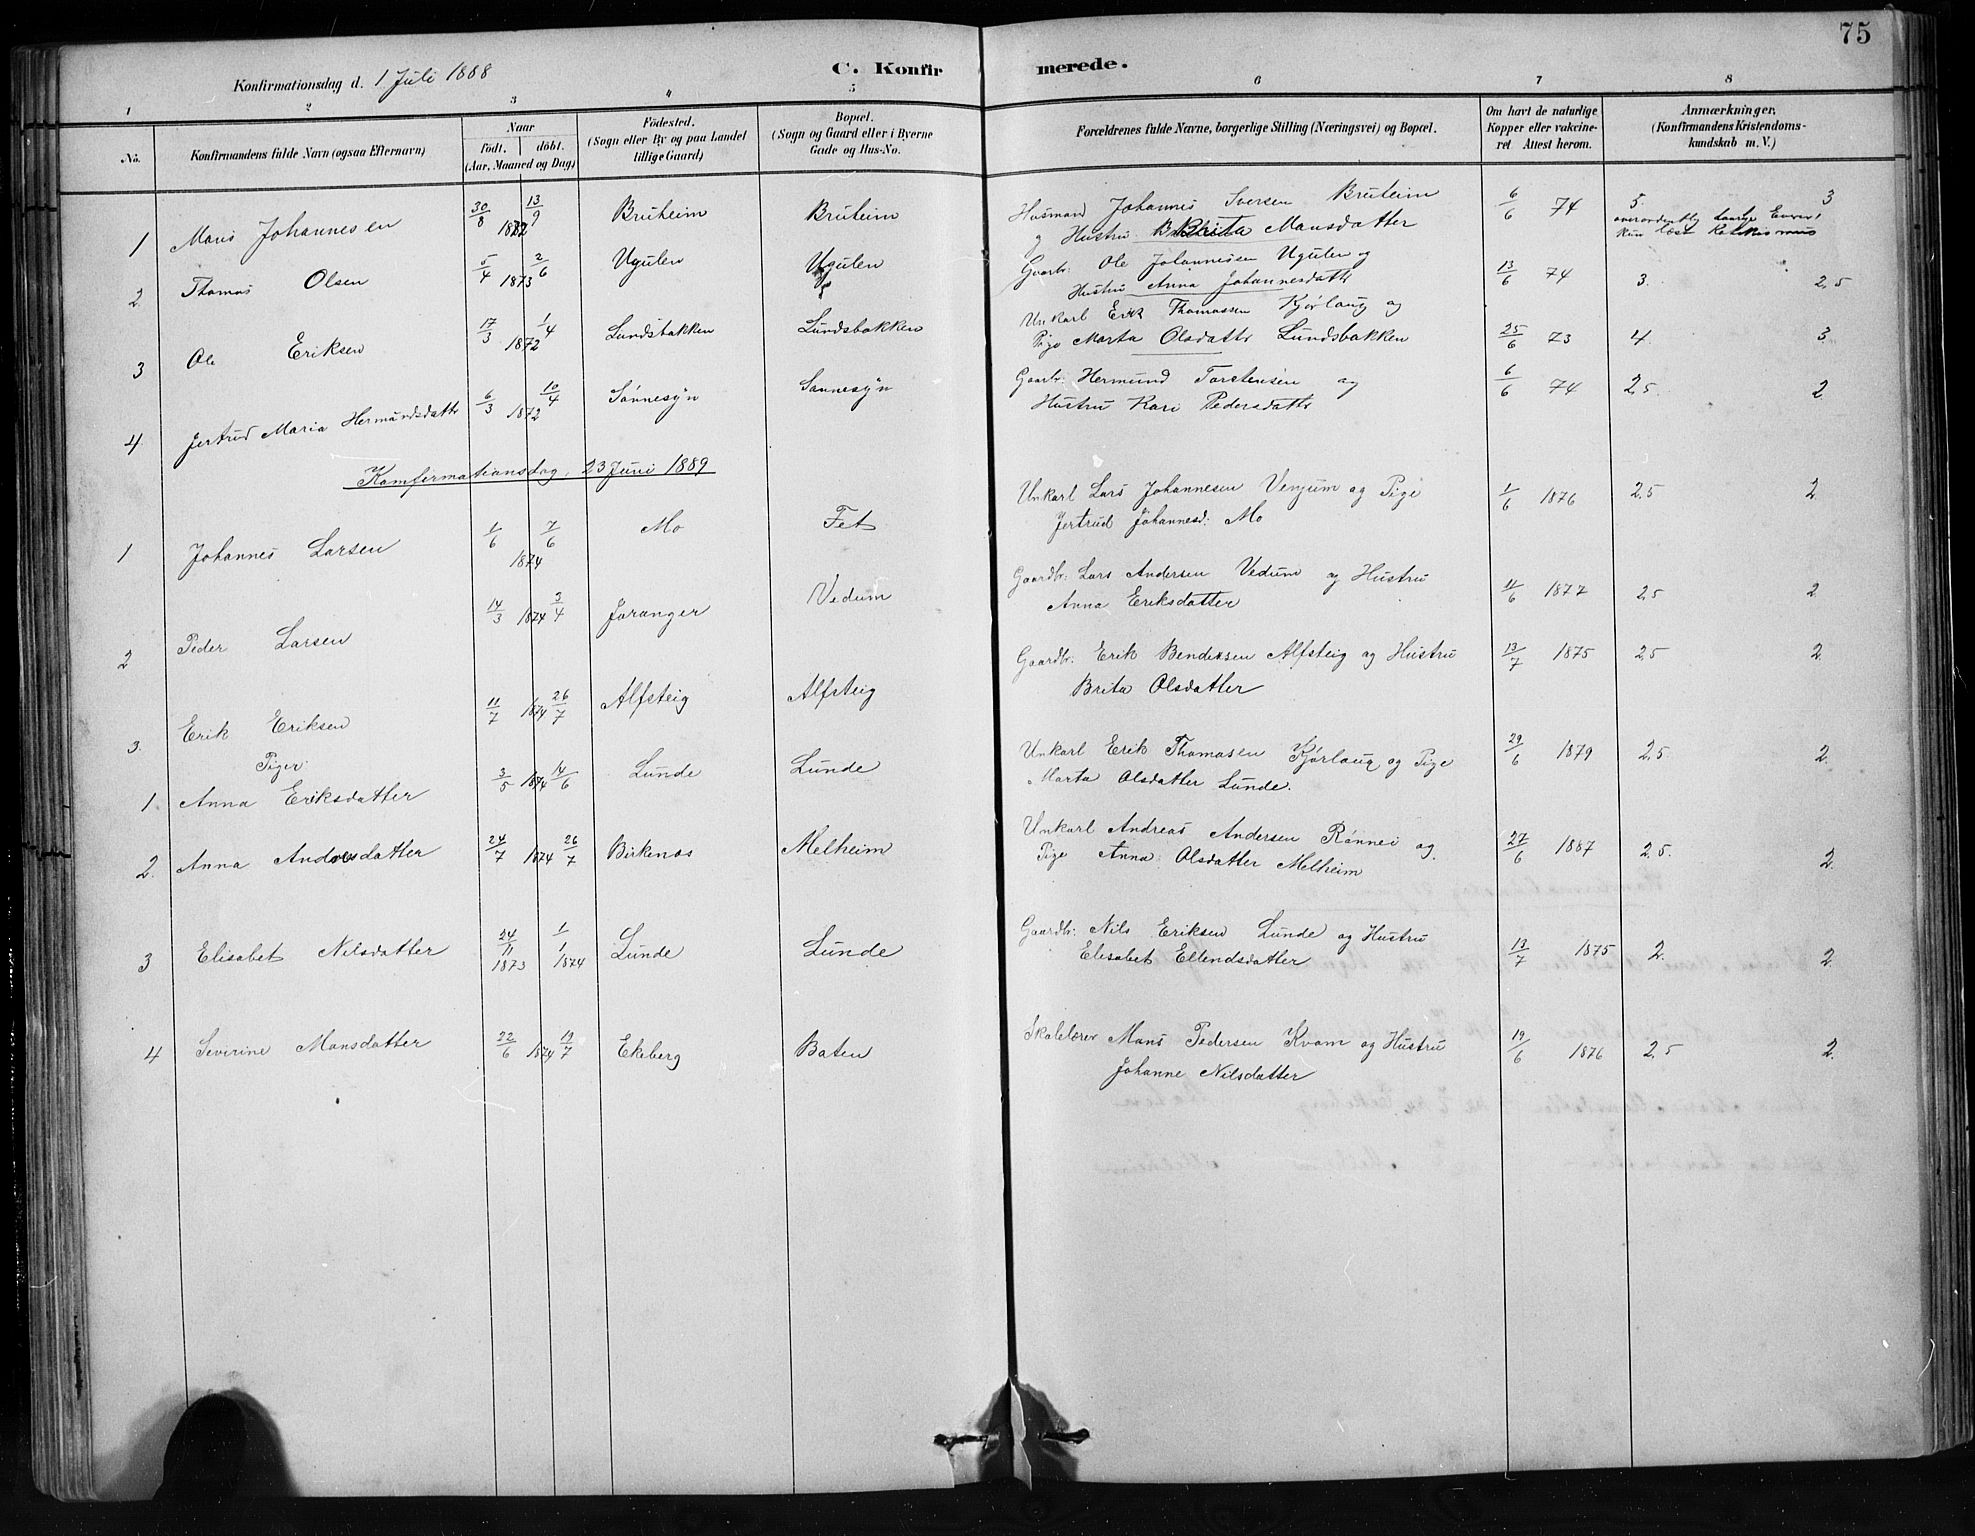 75
Konfirmationsdag d. 1 Juli 1888
C. Konfirmerede.
1 2 3 4 5 6 7 8
No.
Konfirmandens fulde Navn (ogsaa Efternavn)
Naar
födt. döbt.
(Aar, Maaned og Dag)
Födested.
(Sogn eller By og paa Landet
tillige Gaard)
Bopæl.
(Sogn og Gaard eller i Byerne
Gade og Hus-No.
Forældrenes fulde Navne, borgerlige Stilling (Næringsvei) og Bopæl.
Om havt de naturlige
Kopper eller vakcine-
ret Attest herom.
Anmærkninger,
(Konfirmandens Kristendoms-
kundskab m. V.)
1 Mons Johannesen 30/8 1872 13/9 Bruheim Bruheim Husmand Johannes Iversen Bruheim 6/6 74 5. 3
og Hustru Brita Monsdatter overordentlig Evner, kun læst Katekismus
2 Thomas Olsen 5/4 1873 2/6 Ugulen Ugulen Gaarbr: Ole Johannesen Ugulen og 13/6 74 3. 2,5
Hustru Anna Johannesdattr
3 Ole Eriksen 17/3 1872 1/4 Lundsbakken Lundsbakken Unkarl Erik Thomassen Kjørlaug og
Pige Marta Olsdattr Lundsbakken 25/6 73 4. 3
4 Jertrud Maria Hermundsdattr 6/3 1872 10/4 Sønnesyn Sønnesyn Gaarbr: Hermund Torstensen og 6/6 74 2,5 2
Hustru Kari Pedersdattr
Komfirmationsdag. 23 Juni 1889
1 Johannes Larsen 1/6 1874 7/6 Mo Fet Unkarl Lars Johannesen Venjum og Pige 1/6 1876 2,5 2
Jertrud Johannesd: Mo
2 Peder Larsen 14/3 1874 3/4 Joranger Vedum Gaardbr: Lars Andersen Vedum og Hustru 11/6 1877 2,5 2
Anna Eriksdatter
3. Erik Eriksen 11/7 1874 26/7 Alfsteig Alfsteig Gaardbr: Erik Bendiksen Alfsteig og Hustru 13/7 1875 2,5 2
Brita Olsdatter
Piger
1. Anna Eriksdatter 3/5 1874 14/6 Lunde Lunde Unkarl Erik Thomasen Kjørlaug og Pige 29/6 1879 2,5. 2.
Marta Olsdatter Lunde.
2. Anna Andresdatter 24/7 1874 26/7 Birkenos Melheim Unkarl Andreas Andersen Rønnei og 27/6 1887 2,5. 2.
Pige Anna Olsdatter Melheim
3 Elisabet Nilsdatter 24/11 1873 1/1 1874 Lunde Lunde Gaardbr: Nils Eriksen Lunde og Hustru 13/7 1875 2. 2.
Elisabet Ellendsdatter
4 Severine Monsdatter 22/6 1874 19/7 Ekeberg Baten Skolelærer Mons Pedersen Kvam og Hustru 19/6 1876 2,5 2.
Johanne Nilsdatter